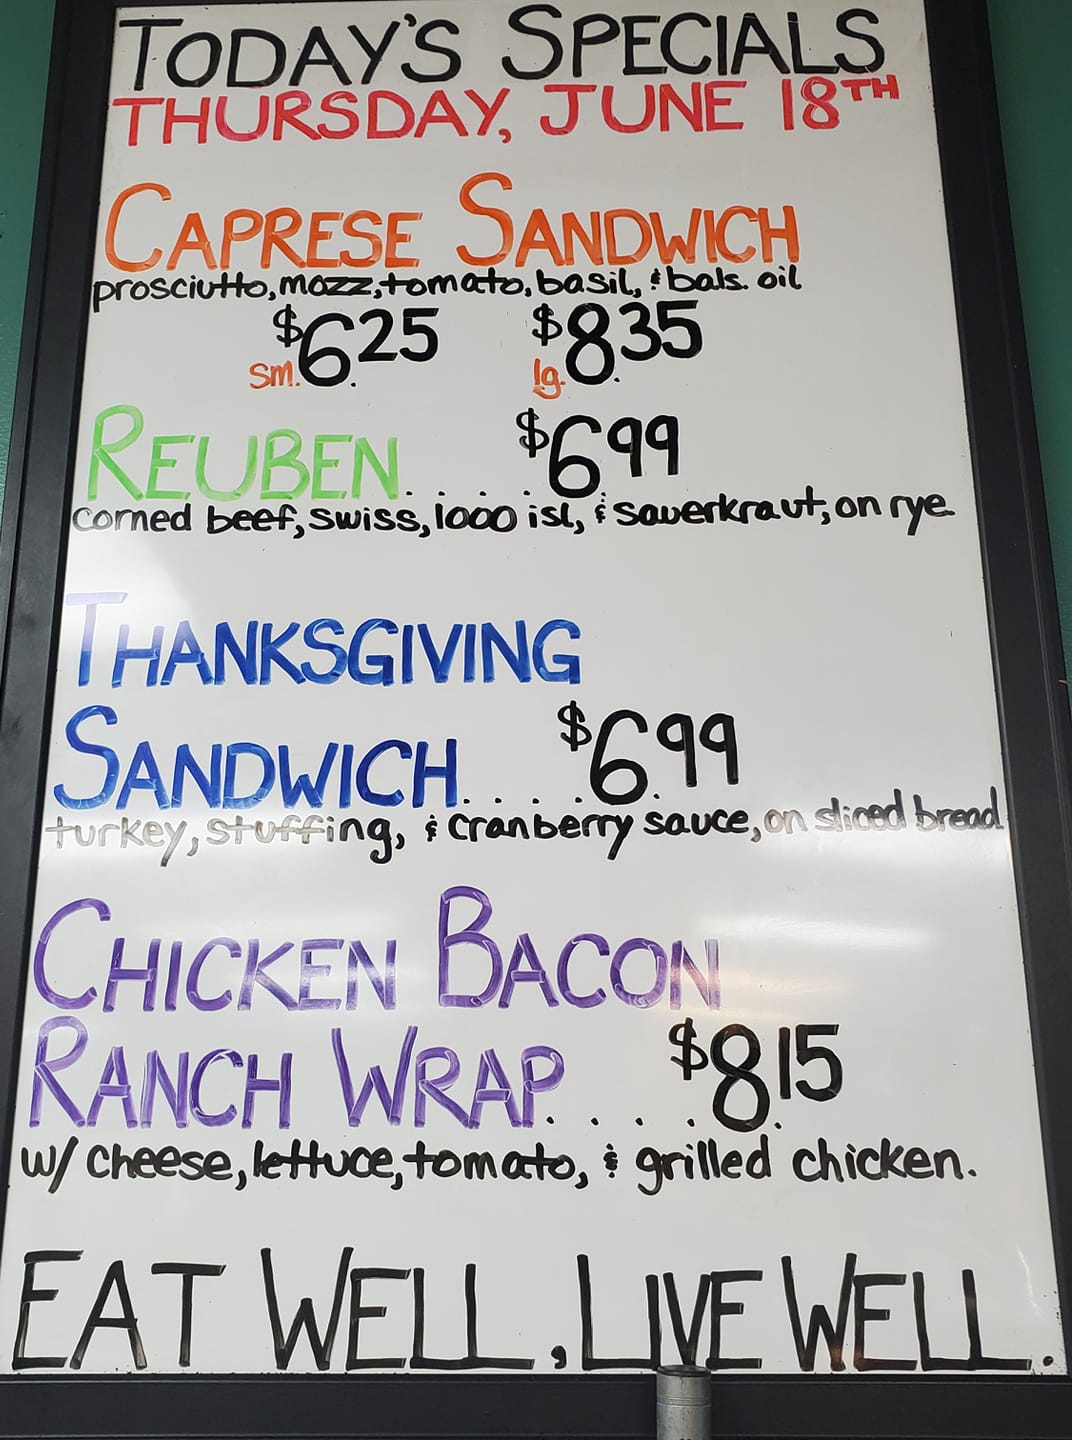 TODAY'S SPECIALS
THURSDAY, JUNE 18TH
CAPRESE SANDWICH
prosciutto, mozz, tomato, basil, & bals. oil
sm. $6.25 lg. $8.35
REUBEN..... $6.99
corned beef, swiss, 1000 isl, & sauerkraut, on rye
THANKSGIVING
SANDWICH.... $6.99
turkey, stuffing, & cranberry sauce, on sliced bread
CHICKEN BACON
RANCH WRAP.... $8.15
w/ cheese, lettuce, tomato, & grilled chicken.
EAT WELL, LIVE WELL.